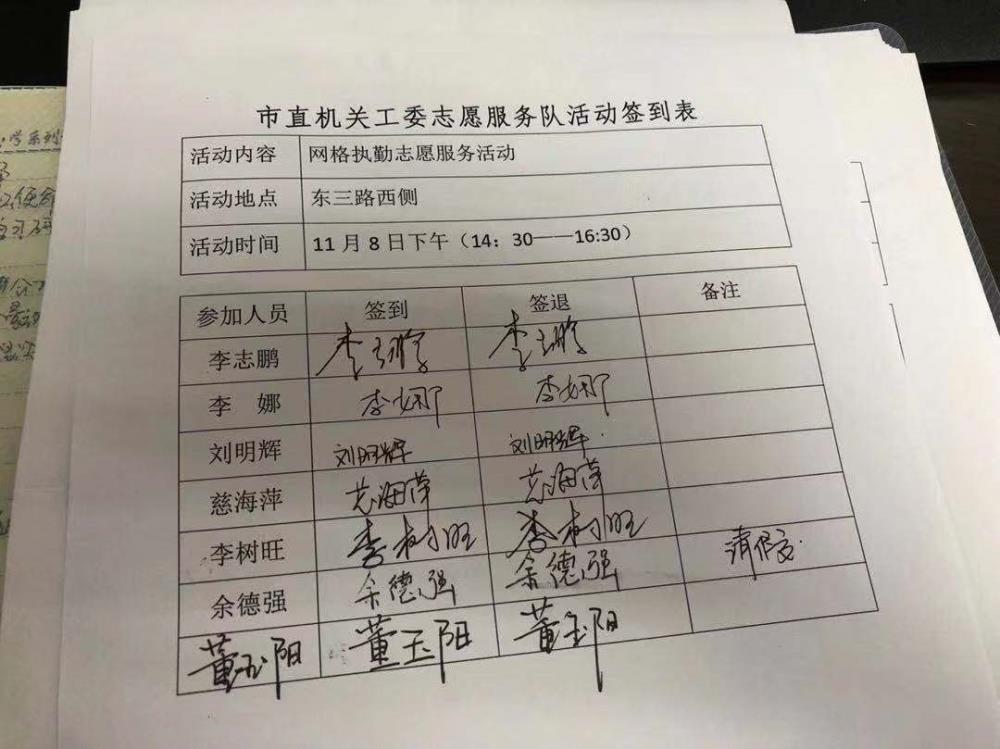 市直机关工委志愿服务队活动签到表
活动内容 网格执勤志愿服务活动
活动地点 东三路西侧
活动时间 11月8日下午（14：30——16:30）
参加人员 签到 签退 备注
李志鹏 李志鹏 李志鹏
李 娜 李娜 李娜
刘明辉 刘明辉 刘明辉
慈海萍 慈海萍 慈海萍
李树旺 李树旺 李树旺
余德强 余德强 余德强
董玉阳 董玉阳 董玉阳